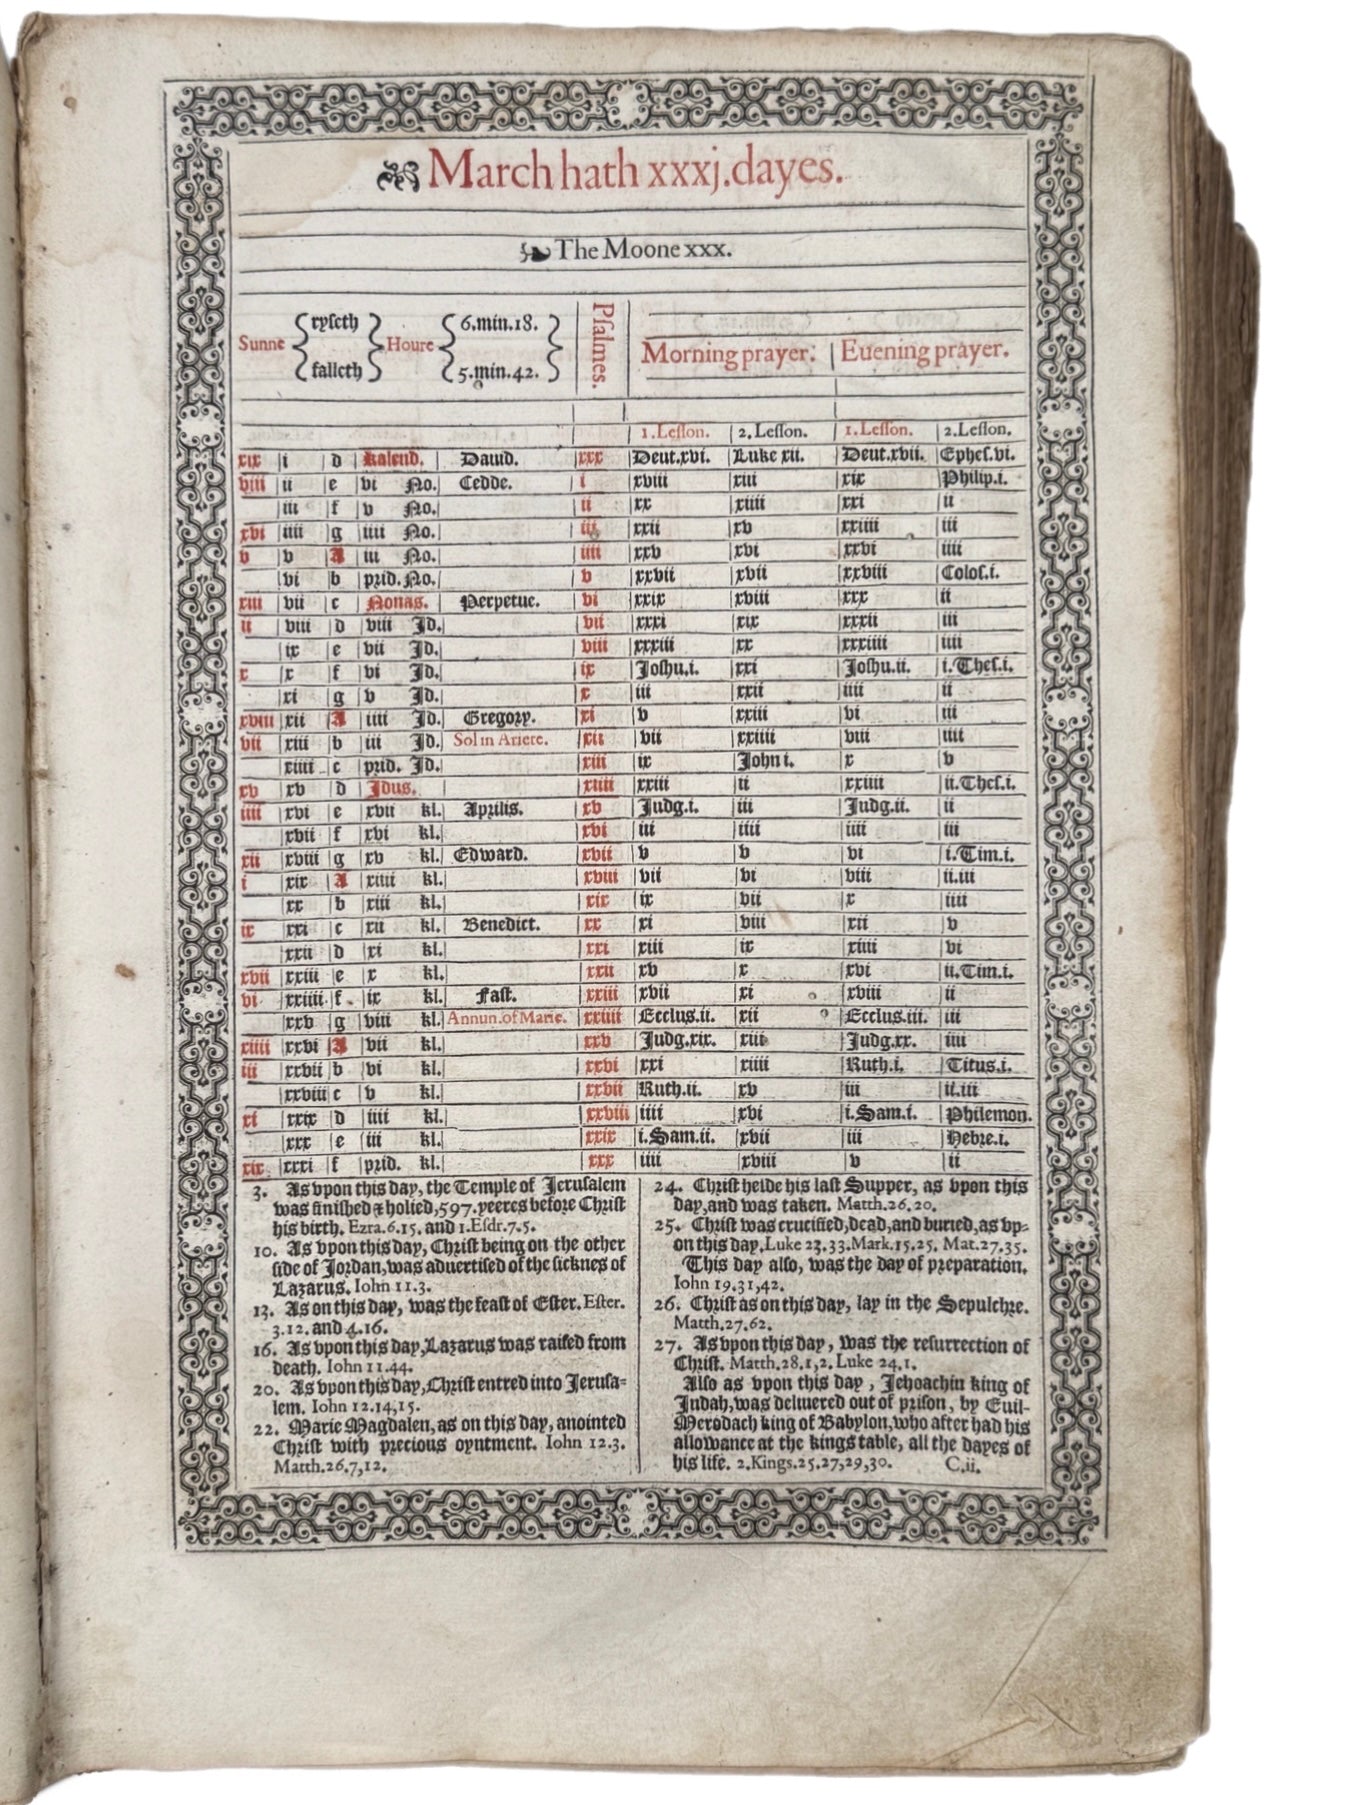 March hath xxxj.dayes.
The Moone xxx.
Sunne { ryseth falleth } Houre { 6.min.18. 5.min.42. }
Psalmes.
Morning prayer: Euening prayer.
1.Lesson. 2.Lesson. 1.Lesson. 2.Lesson.
xix i d Kalend. Dauid. xxx Deut.xvi. Luke xii. Deut.xvii. Ephes.vi.
viii ii e vi No. Cedde. i xviii xiii xix Philip.i.
iii f v No. ii xx xiiii xxi ii
xvi iiii g iiii No. iii xxii xv xxiiii iii
v v A iii No. iiii xxv xvi xxvi iiii
vi b prid. No. v xxvii xvii xxviii Colos.i.
xiii vii c Nonas. Perpetue. vi xxix xviii xxx ii
ii viii d viii Id. vii xxxi xix xxxii iii
ix e vii Id. viii xxxiii xx xxxiiii iiii
x x f vi Id. ix Joshu.i. xxi Joshu.ii. i.Thes.i.
xi g v Id. x iii xxii iiii ii
xviii xii A iiii Id. Gregory. xi v xxiii vi iii
vii xiii b iii Id. Sol in Ariete. xii vii xxiiii viii iiii
xiiii c prid. Id. xiii ix John i. x v
xv xv d Idus. xiiii xxiii ii xxiiii ii.Thes.i.
iiii xvi e xvii kl. Aprilis. xv Judg.i. iii Judg.ii. ii
xvii f xvi kl. xvi iii iiii iiii iii
xii xviii g xv kl. Edward. xvii v v vi i.Tim.i.
i xix A xiiii kl. xviii vii vi viii ii.iii
xx b xiii kl. xix ix vii x iiii
ix xxi c xii kl. Benedict. xx xi viii xii v
xxii d xi kl. xxi xiii ix xiiii vi
xvii xxiii e x kl. xxii xv x xvi ii.Tim.i.
vi xxiiii f ix kl. Fast. xxiii xvii xi xviii ii
xxv g viii kl. Annun.of Marie. xxiiii Ecclus.ii. xii Ecclus.iii. iii
xiiii xxvi A vii kl. xxv Judg.xix. xiii Judg.xx. iiii
iii xxvii b vi kl. xxvi xxi xiiii Ruth.i. Titus.i.
xxviii c v kl. xxvii Ruth.ii. xv iii ii.iii
xi xxix d iiii kl. xxviii iiii xvi i.Sam.i. Philemon.
xxx e iii kl. xxix i.Sam.ii. xvii iii Hebre.i.
xix xxxi f prid. kl. xxx iiii xviii v ii
3. As vpon this day, the Temple of Jerusalem
was finished & holied,597.yeeres before Christ
his birth. Ezra.6.15. and 1.Esdr.7.5.
10. As vpon this day, Christ being on the other
side of Jordan,was aduertised of the sicknes of
Lazarus. Iohn 11.3.
13. As on this day, was the feast of Ester. Ester.
3.12. and 4.16.
16. As vpon this day,Lazarus was raised from
death. Iohn 11.44.
20. As vpon this day,Christ entred into Jerusa=
lem. Iohn 12.14,15.
22. Marie Magdalen,as on this day, anointed
Christ with precious oyntment. Iohn 12.3.
Matth.26.7,12.
24. Christ helde his last Supper, as vpon this
day,and was taken. Matth.26.20.
25. Christ was crucified,dead,and buried,as vp=
on this day.Luke 23.33.Mark.15.25. Mat.27.35.
This day also, was the day of preparation.
Iohn 19.31,42.
26. Christ as on this day, lay in the Sepulchre.
Matth.27.62.
27. As vpon this day, was the resurrection of
Christ. Matth.28.1,2. Luke 24.1.
Also as vpon this day, Jehoachin king of
Judah,was deliuered out of prison, by Euil-
Merodach king of Babylon,who after had his
allowance at the kings table, all the dayes of
his life. 2.Kings.25.27,29,30.
C.ii.